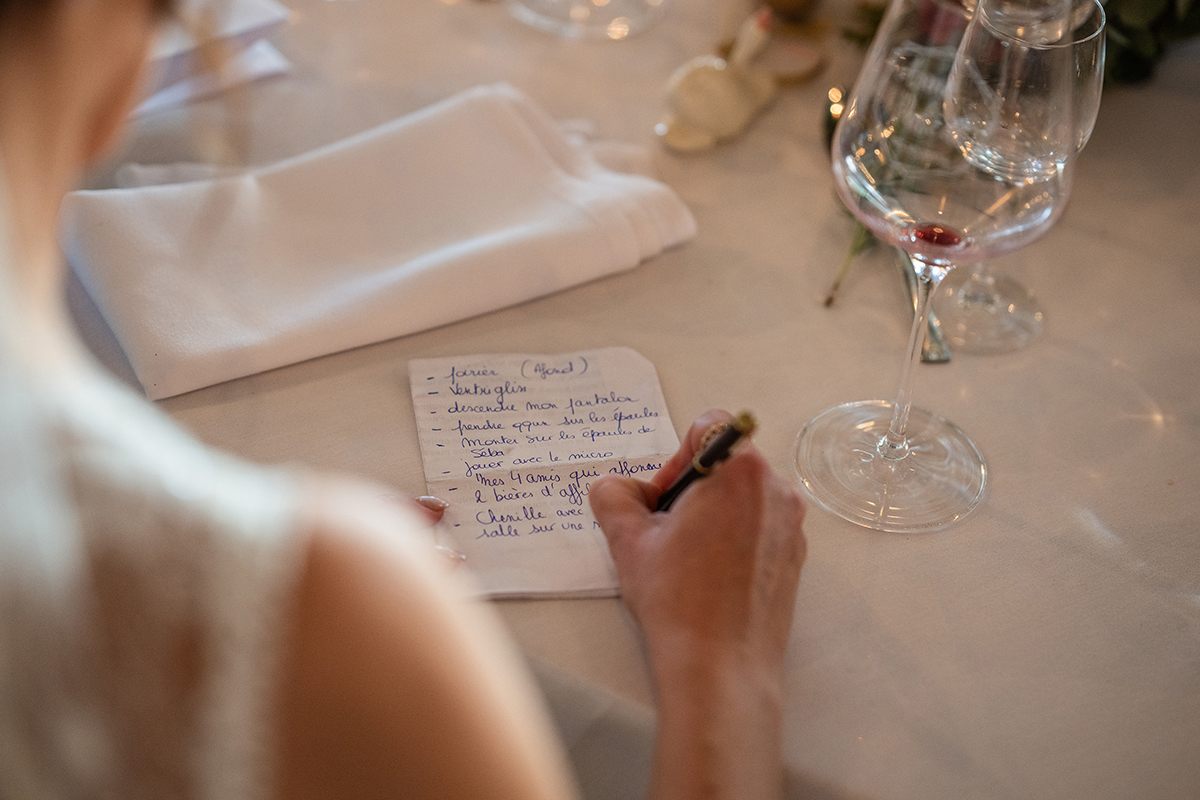 - (Afond)
- Ventriglisse
- descendre mon pantalon
- prendre qqun sur les épaules
- Monter sur les épaules de
Séba
- jouer avec le micro
- Mes 4 amis qui affonne
2 bières d'affil
- Chenille avec
salle sur une